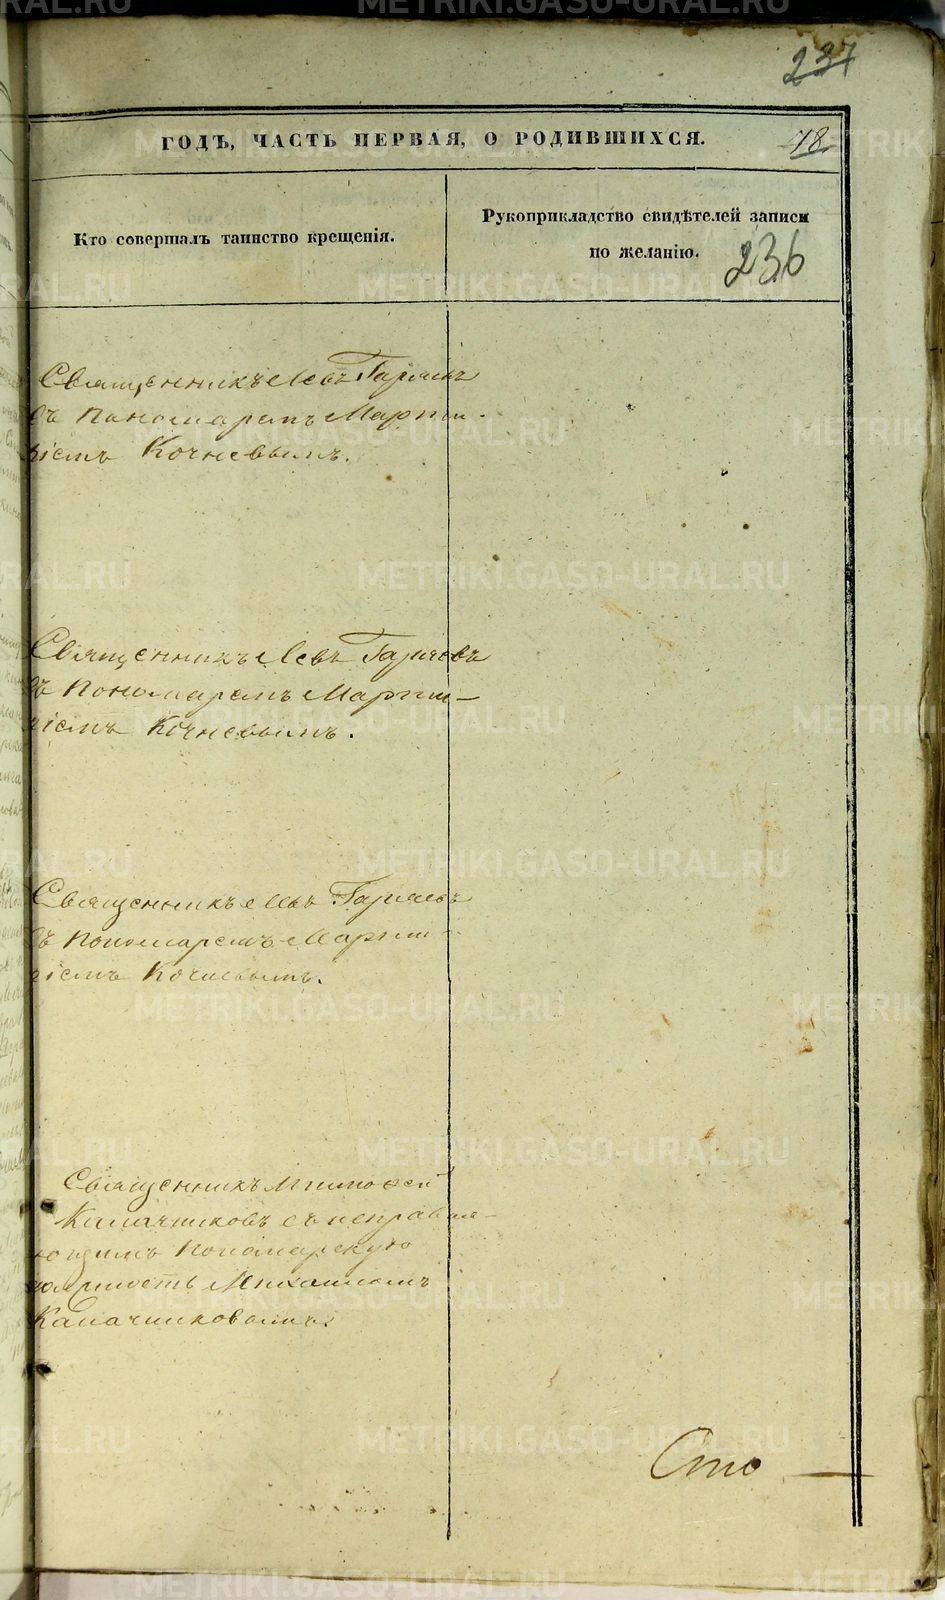 237
ГОДЪ, ЧАСТЬ ПЕРВАЯ, О РОДИВШИХСЯ.
78.
Кто совершалъ таинство крещенія.
Рукоприкладство свидѣтелей записи
по желанію.
236
Священникъ Левъ Гаряевъ
съ Пономаремъ Марти-
ріемъ Кочневымъ.
Священникъ Левъ Гаряевъ
съ Пономаремъ Марти-
ріемъ Кочневымъ.
Священникъ Левъ Гаряевъ
съ Пономаремъ Марти-
ріемъ Кочневымъ.
Священникъ Тимоѳей
Калачниковъ съ исправля-
ющимъ Пономарскую
должность Михаиломъ
Калачниковымъ.
Сто
METRIKI.GASO-URAL.RU